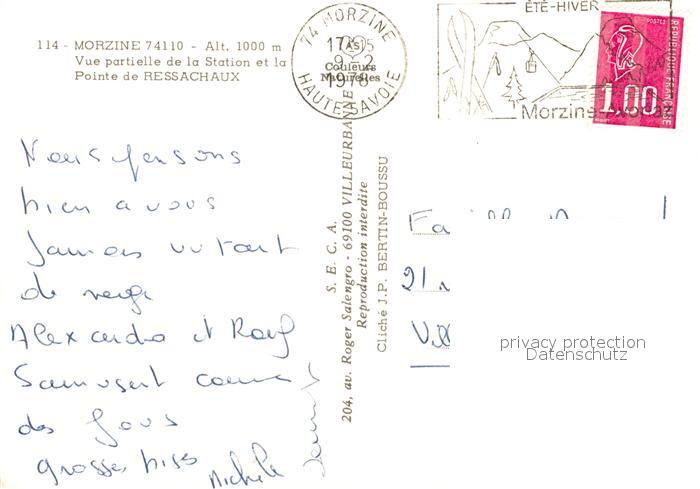 114 - MORZINE 74110 - Alt. 1000 m
Vue partielle de la Station et la
Pointe de RESSACHAUX
74 MORZINE
17H05
9-2
1978
HAUTE-SAVOIE
Couleurs
Naturelles
ÉTÉ-HIVER
Morzine-Avoriaz
POSTES
REPUBLIQUE FRANÇAISE
1,00
Nous pensons
bien a vous
Jamais vu tant
de neige
Alexandra et
S'amusent comme
des fous
grosses bises
Michèle
S. E. C. A.
204, av. Roger Salengro - 69100 VILLEURBANNE
Reproduction interdite
Cliché J.P. BERTIN-BOUSSU
Fa
21
Vill
privacy protection
Datenschutz